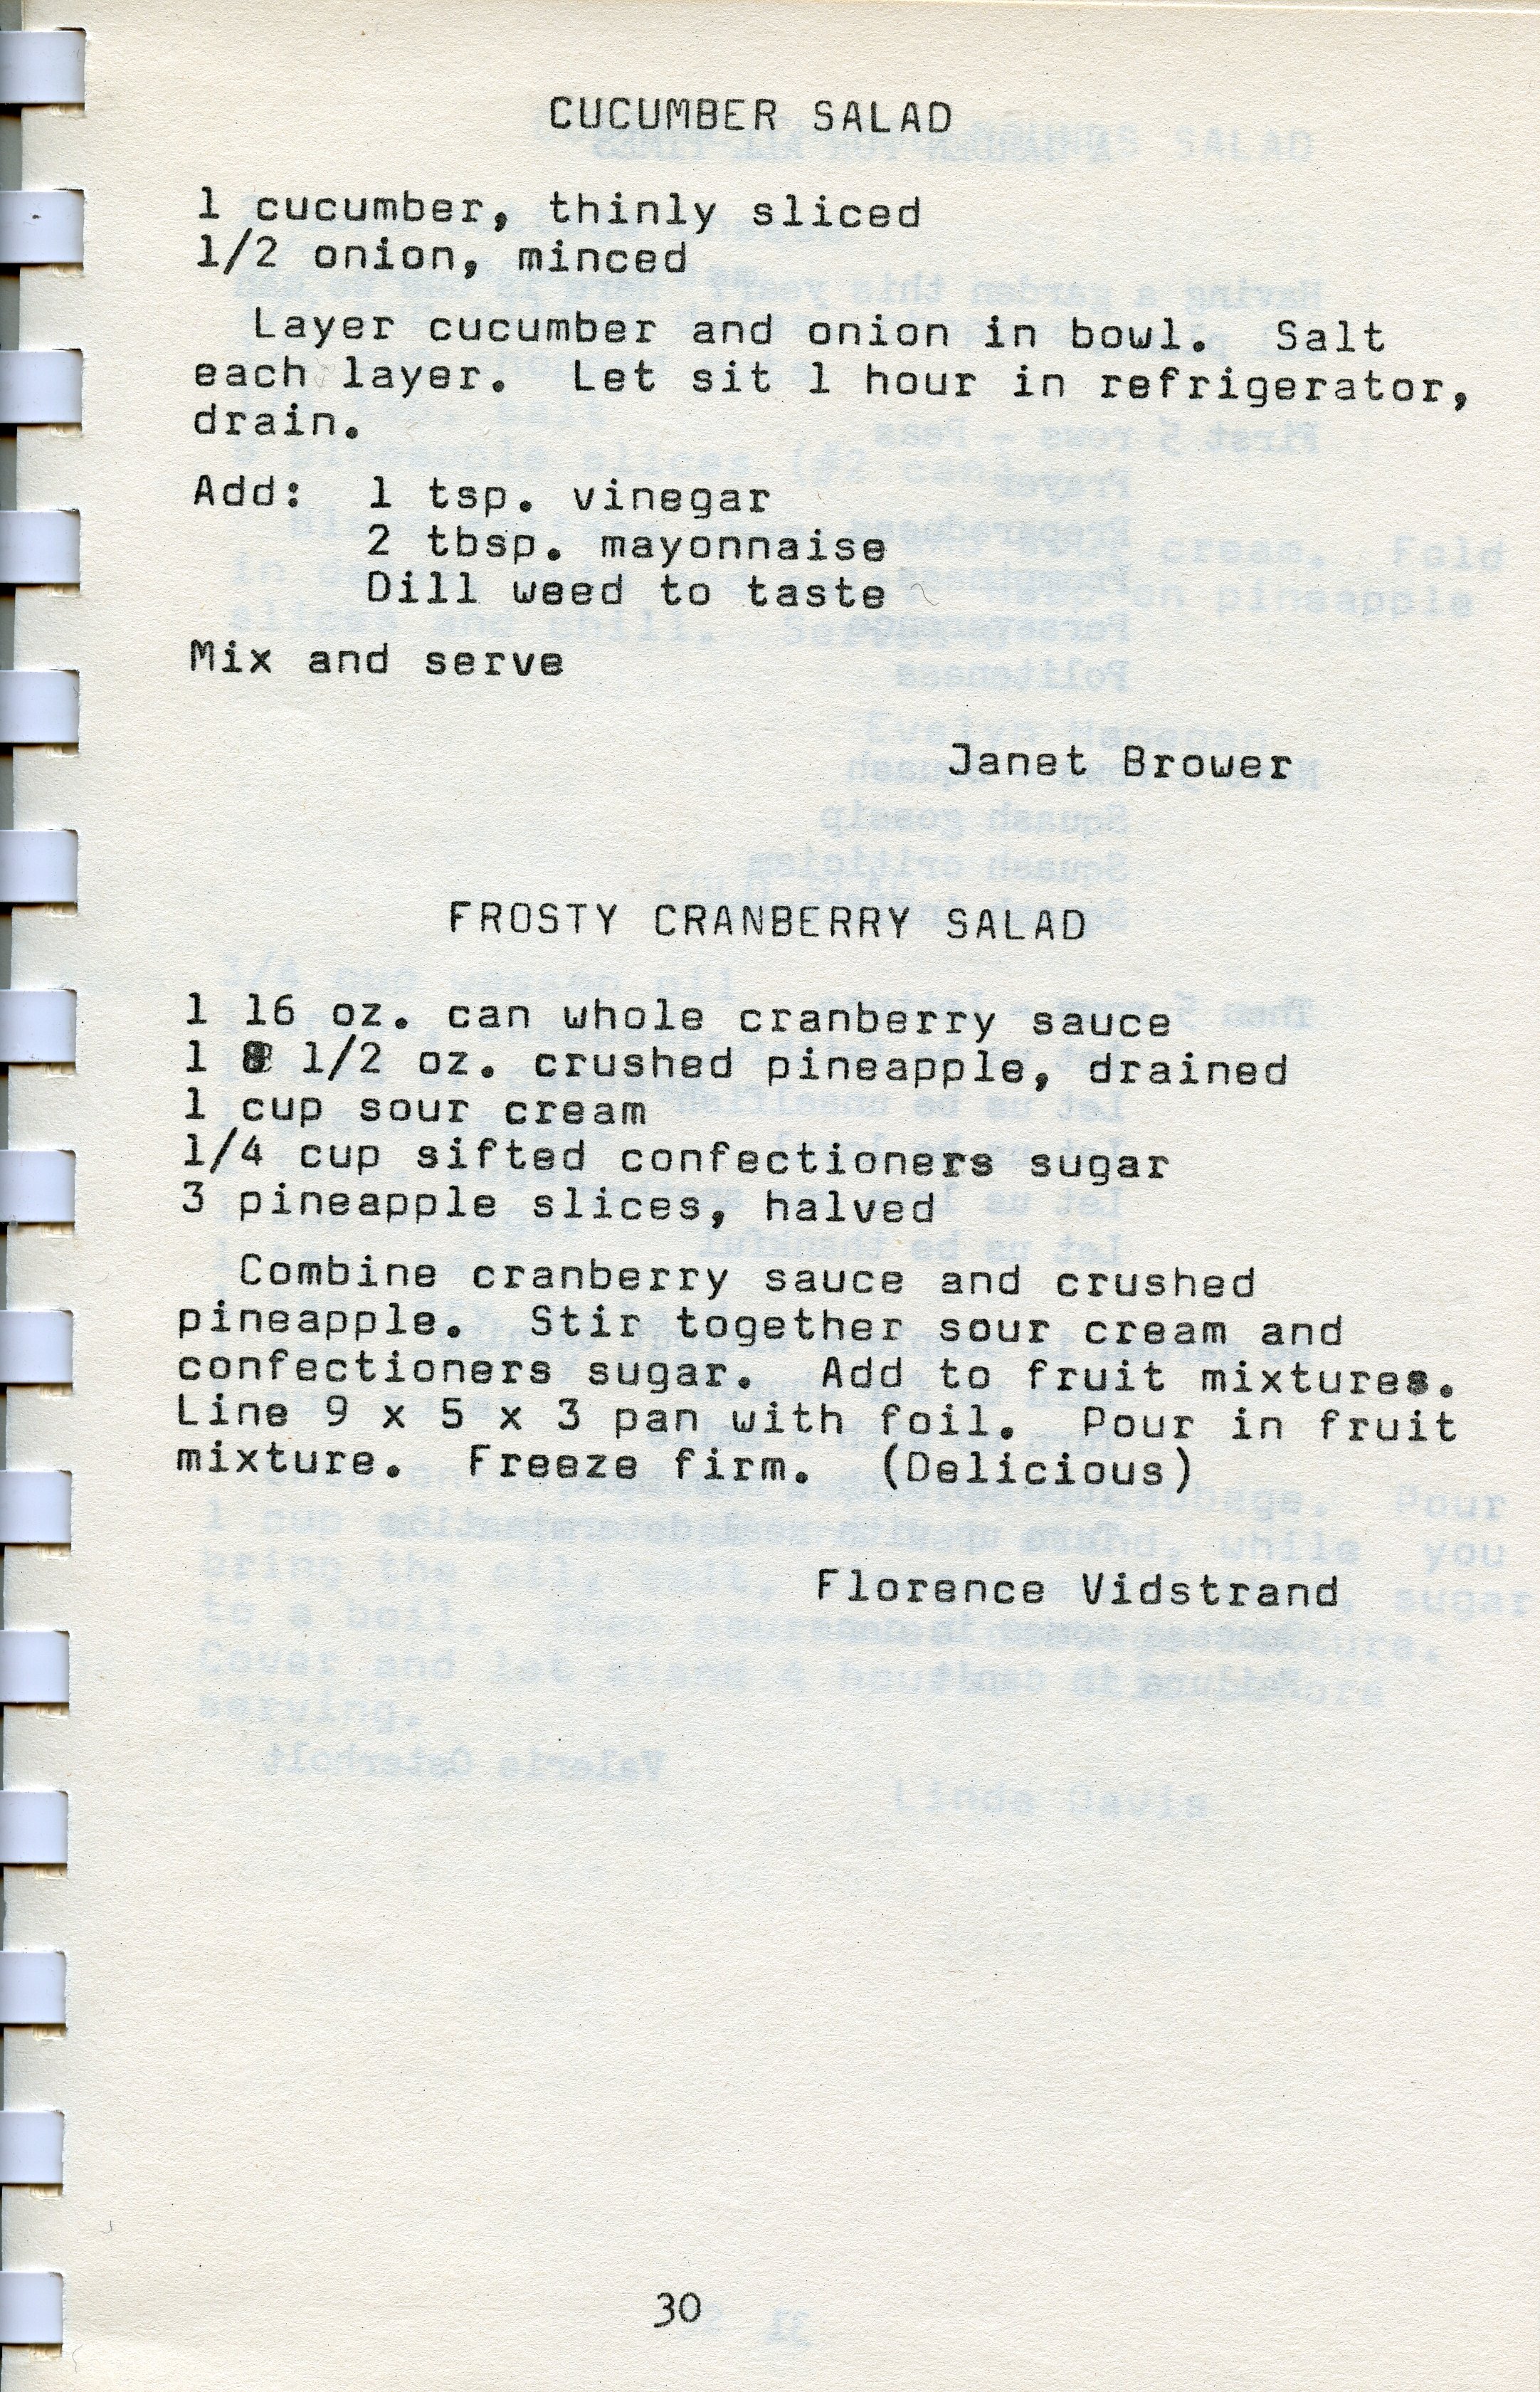 CUCUMBER SALAD
1 cucumber, thinly sliced
1/2 onion, minced
Layer cucumber and onion in bowl. Salt
each layer. Let sit 1 hour in refrigerator,
drain.
Add: 1 tsp. vinegar
2 tbsp. mayonnaise
Dill weed to taste
Mix and serve
Janet Brower
FROSTY CRANBERRY SALAD
1 16 oz. can whole cranberry sauce
1 8 1/2 oz. crushed pineapple, drained
1 cup sour cream
1/4 cup sifted confectioners sugar
3 pineapple slices, halved
Combine cranberry sauce and crushed
pineapple. Stir together sour cream and
confectioners sugar. Add to fruit mixtures.
Line 9 x 5 x 3 pan with foil. Pour in fruit
mixture. Freeze firm. (Delicious)
Florence Vidstrand
30